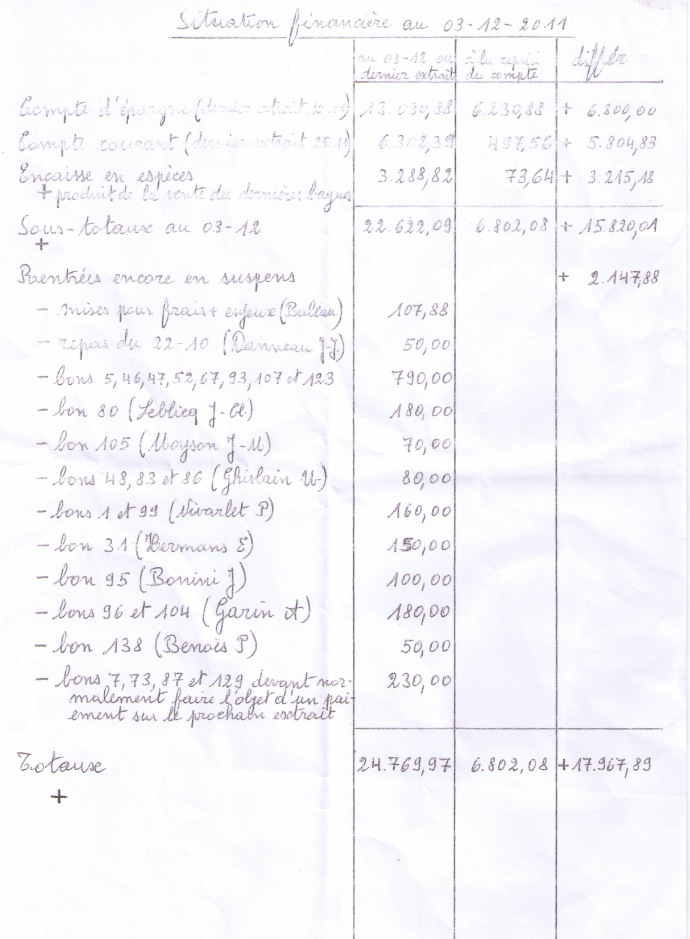 Situation financière au 03-12-2011
au 03-12 ou dernier extrait à la reprise du compte différ
Compte d'épargne (dernier extrait 12.11) 13.030,88 6.230,88 + 6.800,00
Compte courant (dernier extrait 25.11) 6.302,39 497,56 + 5.804,83
Encaisse en espèces 3.288,82 73,64 + 3.215,18
+ produit de la vente du dernières bagues
Sous-totaux au 03-12 22.622,09 6.802,08 + 15.820,01
+
Rentrées encore en suspens + 2.147,88
- mises pour frais + enjeux (Buleau) 107,88
- repas du 22-10 (Danneau J-J.) 50,00
- bons 5,46,47,52,67,93,107 et 123 790,00
- bon 80 (Leblicq J-Cl.) 180,00
- bon 105 (Moyson J-M) 70,00
- bons 48, 83 et 86 (Ghislain W) 80,00
- bons 1 et 99 (Vivarlet P) 160,00
- bon 31 (Hermans E) 150,00
- bon 95 (Bonini J) 100,00
- bons 96 et 104 (Garin A) 180,00
- bon 138 (Benois P) 50,00
- bons 7, 73, 87 et 129 devant nor- 230,00
malement faire l'objet d'un pai-
ement sur le prochain extrait
Totaux 24.769,97 6.802,08 +17.967,89
+